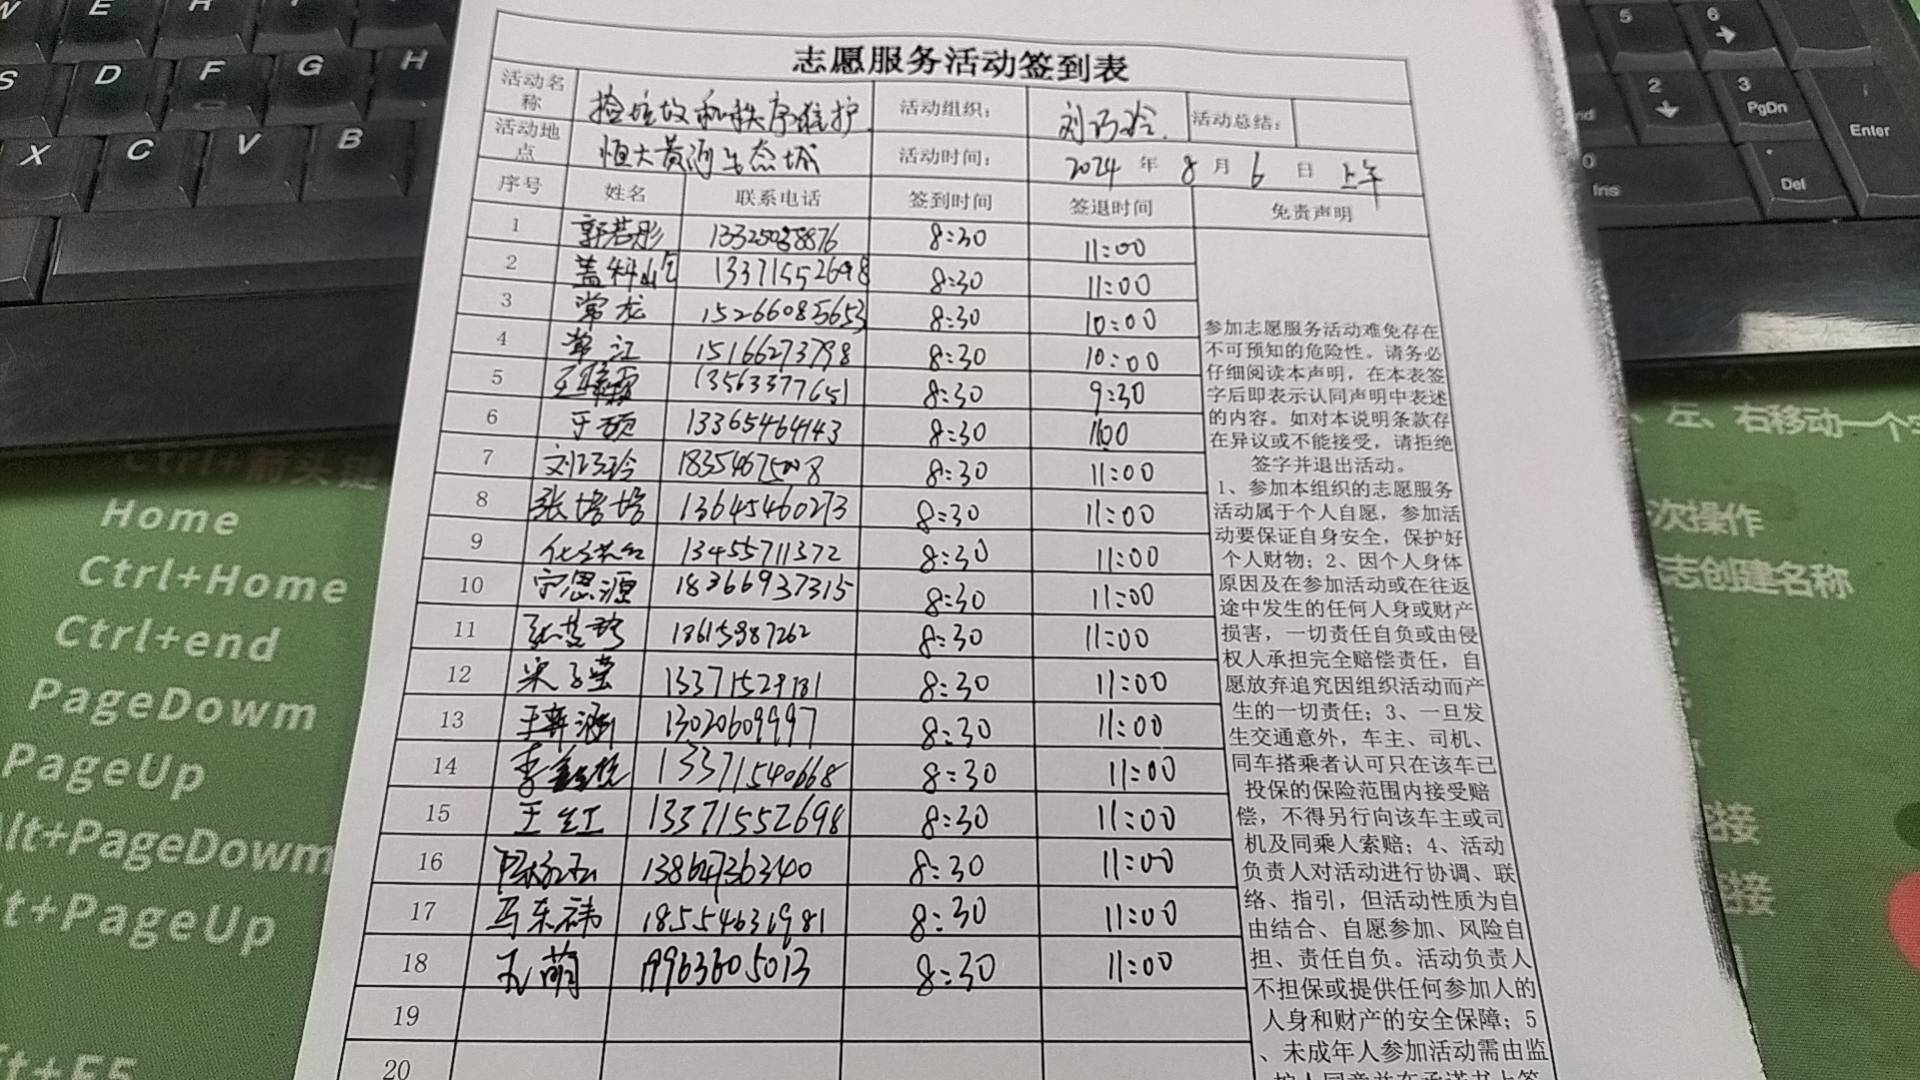 志愿服务活动签到表
活动名称 捡垃圾和秩序维护 活动组织: 刘巧玲 活动总结:
活动地点 恒大黄河生态城 活动时间: 2024 年 8 月 6 日 上午
序号 姓名 联系电话 签到时间 签退时间 免责声明
1 郭若彤 8:30 11:00
2 13371552698 8:30 11:00
3 常龙 15266085653 8:30 10:00
4 常江 15166273798 8:30 10:00
5 13563377651 8:30 9:30
6 于硕 13365464143 8:30 1100
7 刘巧玲 18354675008 8:30 11:00
8 张培培 13645460273 8:30 11:00
9 13455711372 8:30 11:00
10 宁思源 18366937315 8:30 11:00
11 18615987262 8:30 11:00
12 宋子莹 13371529181 8:30 11:00
13 王弈涵 13020609997 8:30 11:00
14 13371540668 8:30 11:00
15 王红 13371552698 8:30 11:00
16 13864736340 8:30 11:00
17 马东祎 18554631981 8:30 11:00
18 孔萌 19963605013 8:30 11:00
19
20
参加志愿服务活动难免存在
不可预知的危险性。请务必
仔细阅读本声明，在本表签
字后即表示认同声明中表述
的内容。如对本说明条款存
在异议或不能接受，请拒绝
签字并退出活动。
1、参加本组织的志愿服务
活动属于个人自愿，参加活
动要保证自身安全，保护好
个人财物；2、因个人身体
原因及在参加活动或在往返
途中发生的任何人身或财产
损害，一切责任自负或由侵
权人承担完全赔偿责任，自
愿放弃追究因组织活动而产
生的一切责任；3、一旦发
生交通意外，车主、司机、
同车搭乘者认可只在该车已
投保的保险范围内接受赔
偿，不得另行向该车主或司
机及同乘人索赔；4、活动
负责人对活动进行协调、联
络、指引，但活动性质为自
由结合、自愿参加、风险自
担、责任自负。活动负责人
不担保或提供任何参加人的
人身和财产的安全保障；5
、未成年人参加活动需由监
护人同意并在承诺书上签
W E R
S D F G H
X C V B
5 6
2 3 PgDn
Enter
0 Ins
Del
Ctrl+箭头键
Home
Ctrl+Home
Ctrl+end
PageDowm
PageUp
Alt+PageDowm
lt+PageUp
it+F5
、左、右移动一个字
次操作
志创建名称
接
接